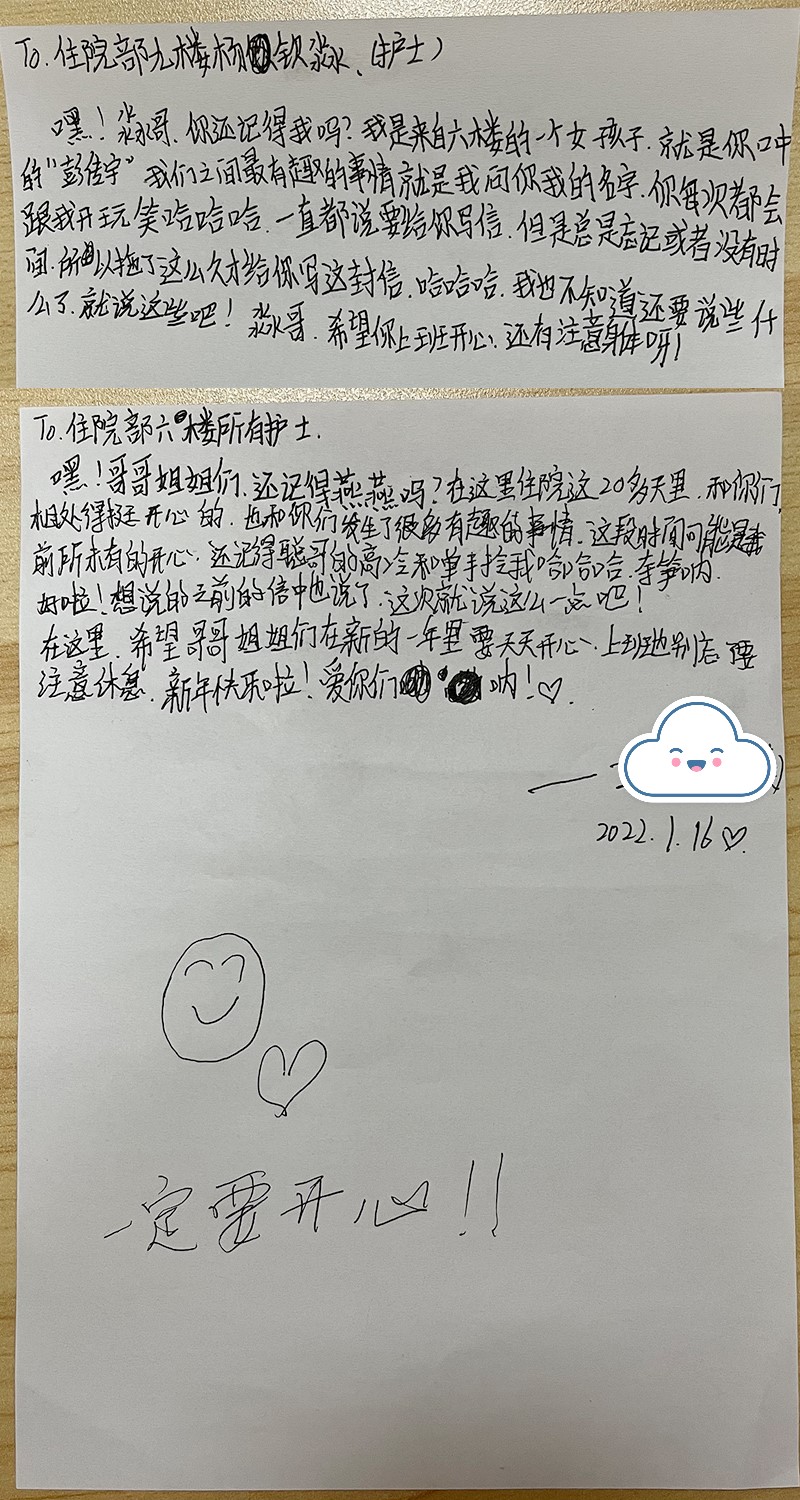 To.住院部九楼杨钦淼、(护士)
嘿!淼哥.你还记得我吗?我是来自六楼的一个女孩子.就是你口中
的“彭佳宇”我们之间最有趣的事情就是我问你我的名字.你每次都会
跟我开玩笑哈哈哈.一直都说要给你写信.但是总是忘记或者没有时
间.所以拖了这么久才给你写这封信.哈哈哈.我也不知道还要说些什
么了.就说这些吧!淼哥.希望你上班开心.还有注意身体呀!
To.住院部六楼所有护士.
嘿!哥哥姐姐们.还记得燕燕吗?在这里住院这20多天里.和你们
相处得挺开心的.也和你们发生了很多有趣的事情.这段时间可能是我
前所未有的开心.还记得聪哥的高冷和单手拎我哈哈哈.
好啦!想说的之前的信中也说了.这次就说这么一点吧!
在这里.希望哥哥姐姐们在新的一年里要天天开心、上班也别忘要
注意休息.新年快乐啦!爱你们呐!♡.
2022.1.16♡.
一定要开心!!